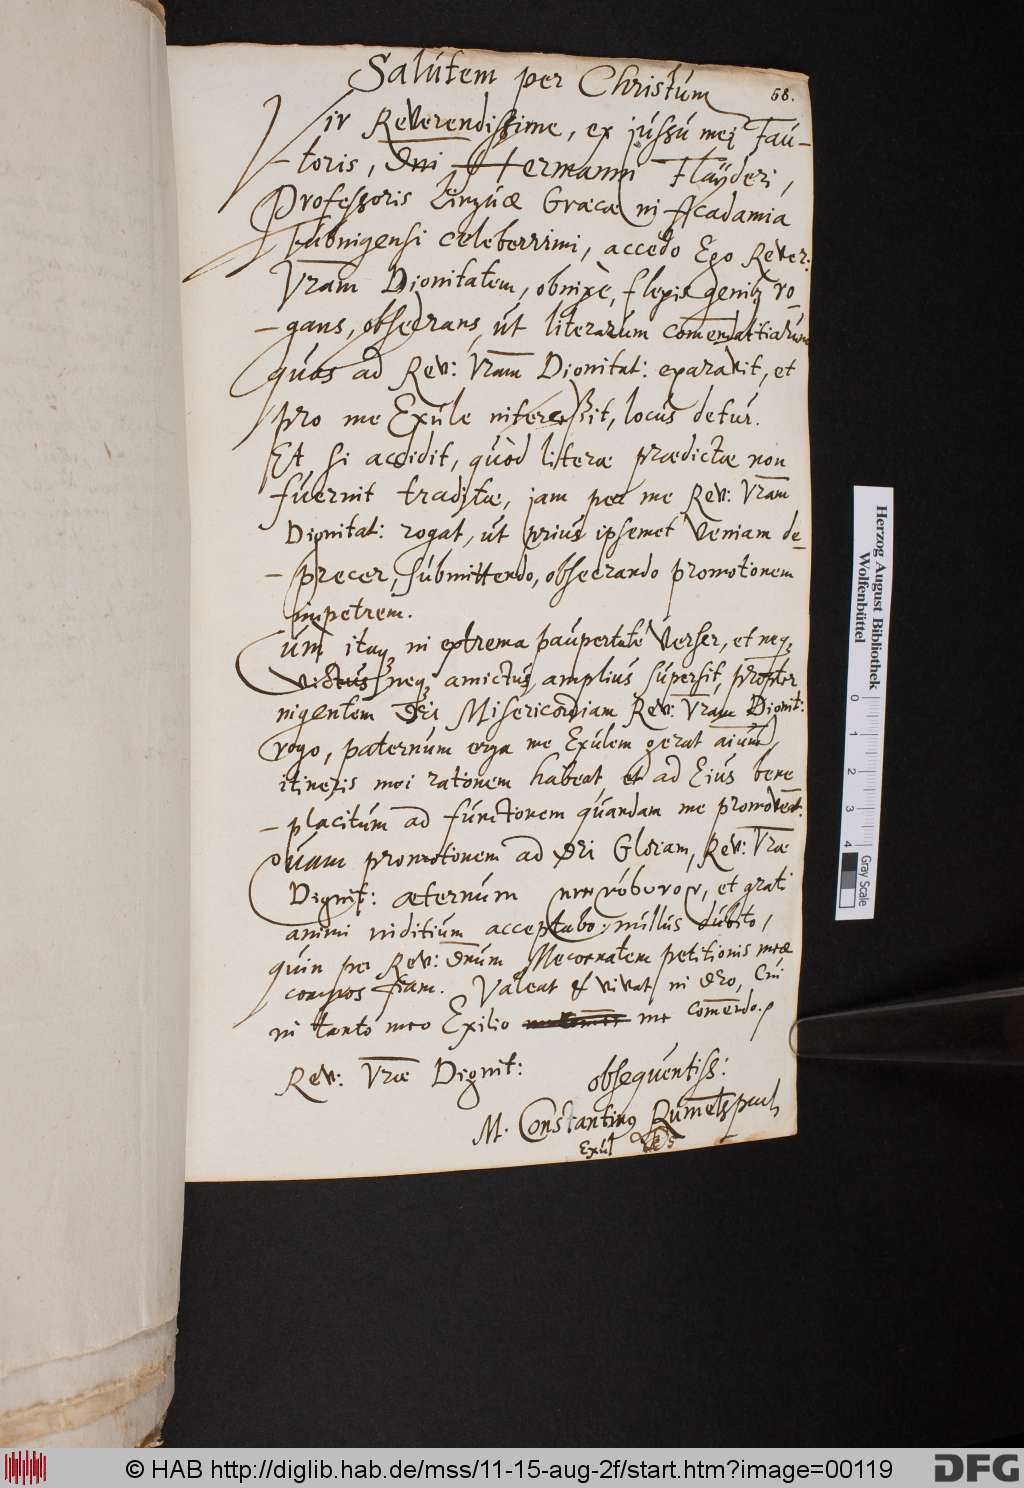 Salutem per Christum
68.
Vir Reverendissime, ex jussu mei Fau-
-toris, Dni Hermanni Flayderi,
Professoris Linguæ Græcæ in Acadamia
Tubingensi celeberrimi, accedo Ego Rever:
Vram Dignitatem, obnixè, flexis genibq ro-
-gans, obsecrans, ut literarum comendatitiarum
quas ad Rev: Vram Dignitat: exaravit, et
pro me Exule intercessit, locus detur.
Et, si accidit, quòd literæ prædictæ non
fuerint traditæ, jam per me Rev: Vram
Dignitat: rogat, ut prius ipsemet veniam de-
-precer, submittendo, obsecrando promotionem
impetrem.
Cum itaq3 in extrema paupertate verser, et neq3
victus neq3 amictus amplius supersit, propter
ingentem Dei Misericordiam Rev: Vram Dignit:
rogo, paternum erga me Exulem gerat aium,
itineris mei rationem habeat, et ad Eius bene
-placitum ad functionem quandam me promoveat:
Quam promotionem ad Dei Gloriam, Rev: Vræ
Dignit: æternum, et grati
animi inditium acceptabo: nullus dubito,
quin per Rev: Dnum Mecœnatem petitionis meæ
compos fiam. Valeat & vivat in Dno, Cui
in tanto meo Exilio me comendo.
Rev: Vræ Dignit:
obsequentiss:
M. Constantinq
Exul
Herzog August Bibliothek
Wolfenbüttel
0 1 2 3 4
Gray Scale
© HAB http://diglib.hab.de/mss/11-15-aug-2f/start.htm?image=00119
DFG